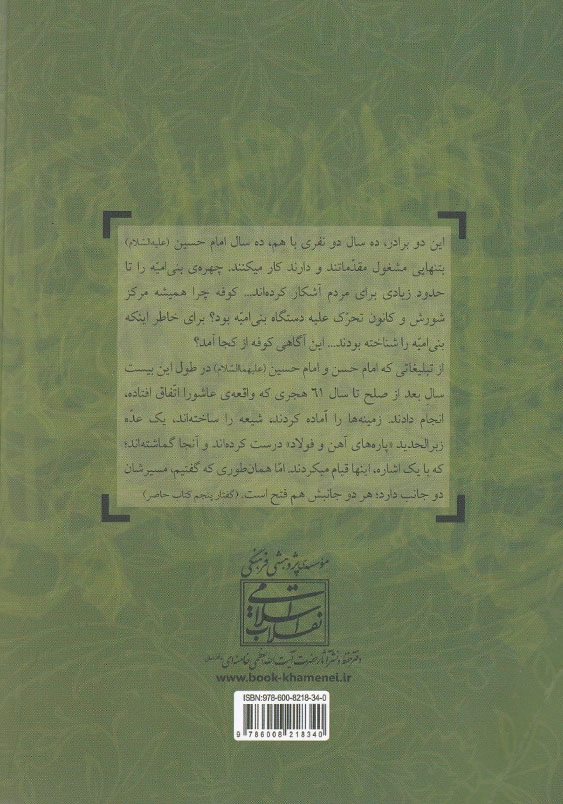 این دو برادر، ده سال دو نفری با هم، ده سال امام حسین (علیه‌السّلام)
بتنهایی مشغول مقدّماتند و دارند کار میکنند. چهره‌ی بنی‌امیّه را تا
حدود زیادی برای مردم آشکار کرده‌اند... کوفه چرا همیشه مرکز
شورش و کانون تحرّک علیه دستگاه بنی‌امیّه بود؟ برای خاطر اینکه
بنی‌امیّه را شناخته بودند... این آگاهی کوفه از کجا آمد؟
از تبلیغاتی که امام حسن و امام حسین (علیهماالسّلام) در طول این بیست
سال بعد از صلح تا سال ۶۱ هجری که واقعه‌ی عاشورا اتّفاق افتاده،
انجام دادند. زمینه‌ها را آماده کردند، شیعه را ساخته‌اند، یک عدّه
زبرالحدید «پاره‌های آهن و فولاد» درست کرده‌اند و آنجا گماشته‌اند؛
که با یک اشاره، اینها قیام میکردند. امّا همان‌طوری که گفتیم، مسیرشان
دو جانب دارد؛ هر دو جانبش هم فتح است. (گفتار پنجم کتاب حاضر)
مؤسسه‌ی پژوهشی فرهنگی
انقلاب اسلامی
دفتر حفظ و نشر آثار حضرت آیت‌الله‌العظمی خامنه‌ای
www.book-khamenei.ir
ISBN:978-600-8218-34-0
9 786008 218340